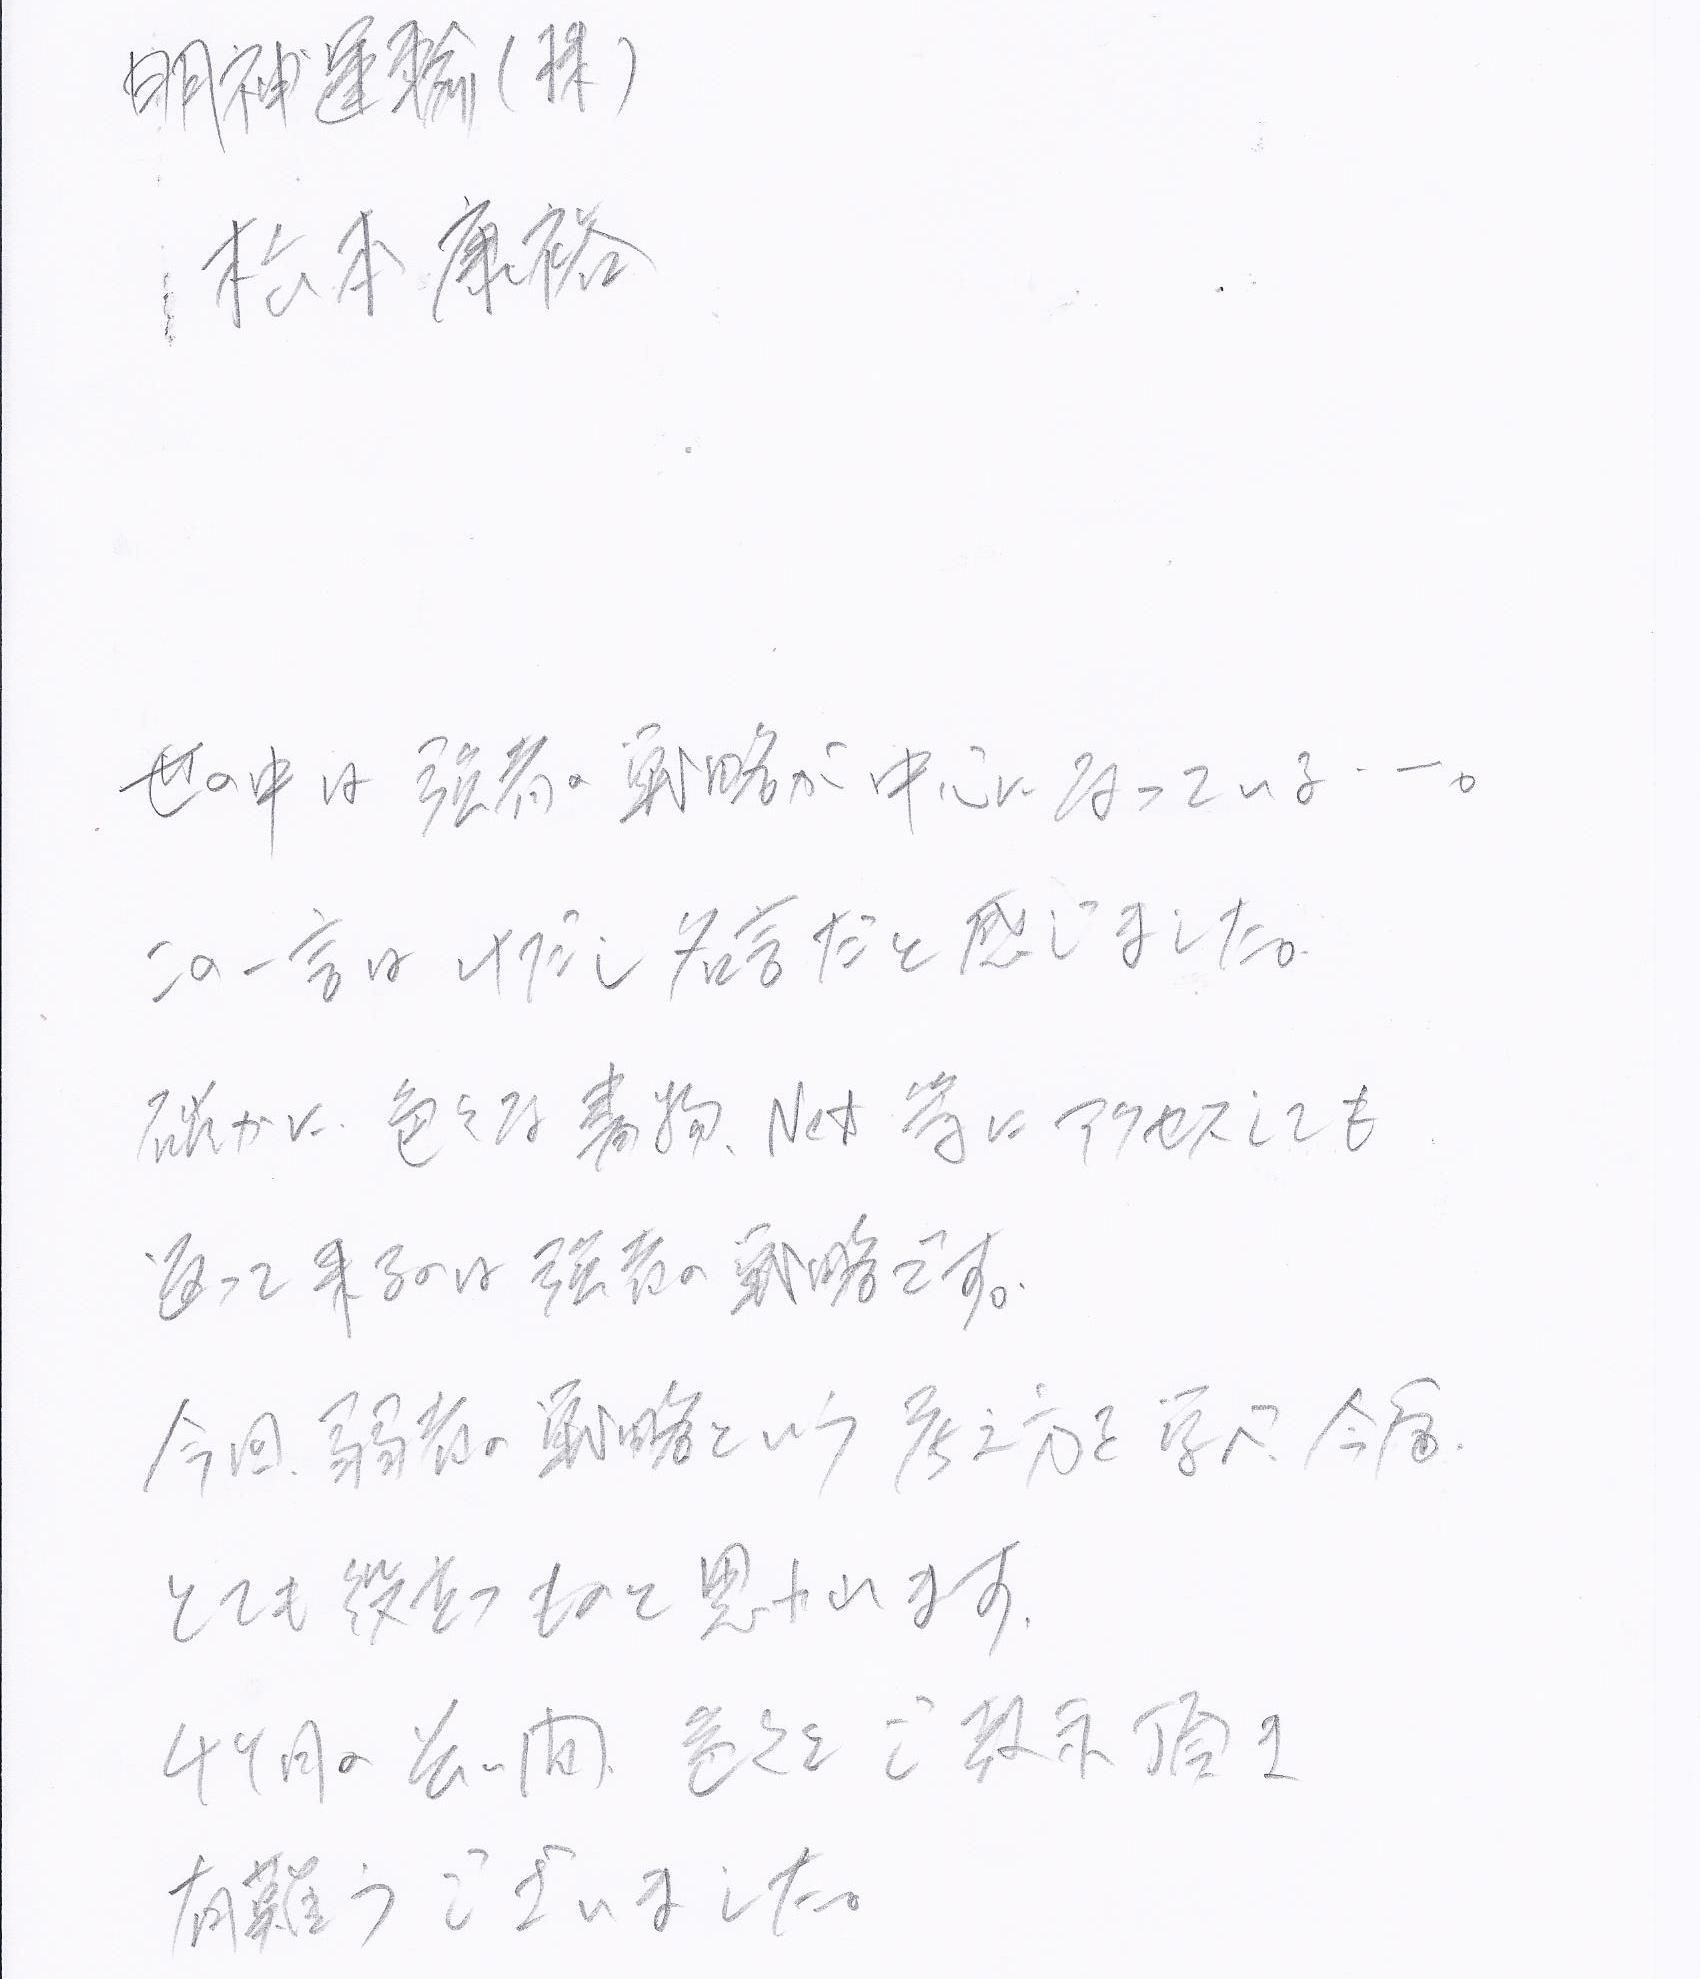 明神運輸(株)
松本康裕
世の中は強者の戦略が中心になっている・・ー。
この一言はけだし名言だと感じました。
確かに、色々な書物、Net等にアクセスしても
返って来るのは強者の戦略です。
今回、弱者の戦略という考え方を学べ、今後、
とても役立つものと思われます。
4ケ月の長い間、色々とご教示頂き
有難うございました。